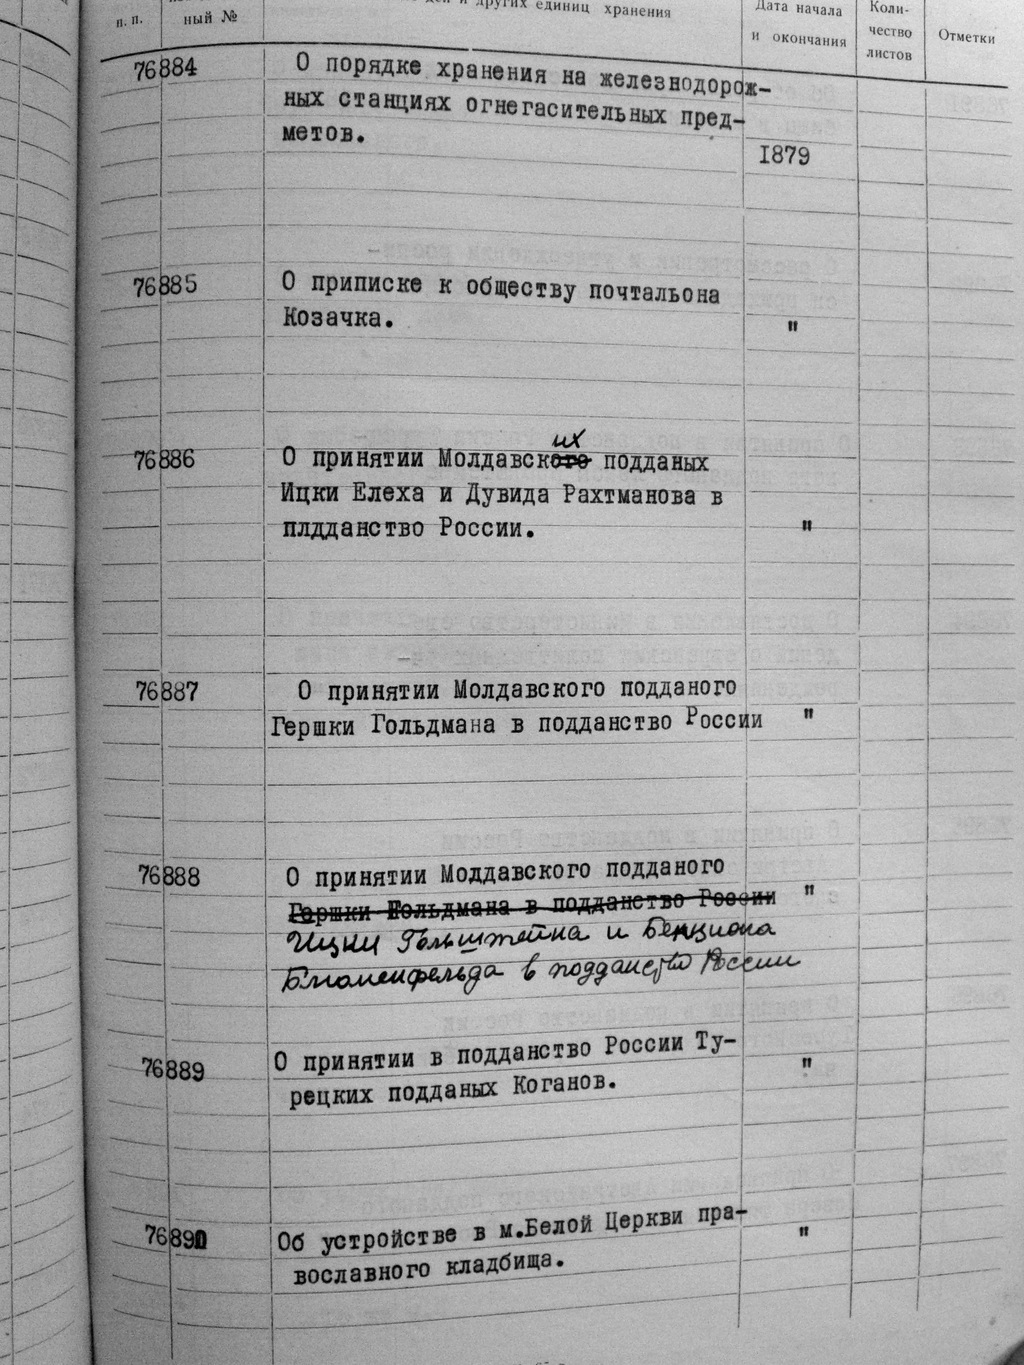 п. п.
ный №
и других единиц хранения
Дата начала
и окончания
Коли-
чество
листов
Отметки
76884 О порядке хранения на железнодорож-
ных станциях огнегасительных пред-
метов.
1879
76885 О приписке к обществу почтальона
Козачка. "
их
76886 О принятии Молдавского подданых
Ицки Елеха и Дувида Рахтманова в
плдданство России. "
76887 О принятии Молдавского подданого
Гершки Гольдмана в подданство России "
76888 О принятии Молдавского подданого
Гершки Гольдмана в подданство России "
Ицки Гольштейна и Бенциона
Блюменфельда в подданство России
76889 О принятии в подданство России Ту-
рецких подданых Коганов. "
76890 Об устройстве в м.Белой Церкви пра-
вославного кладбища. "